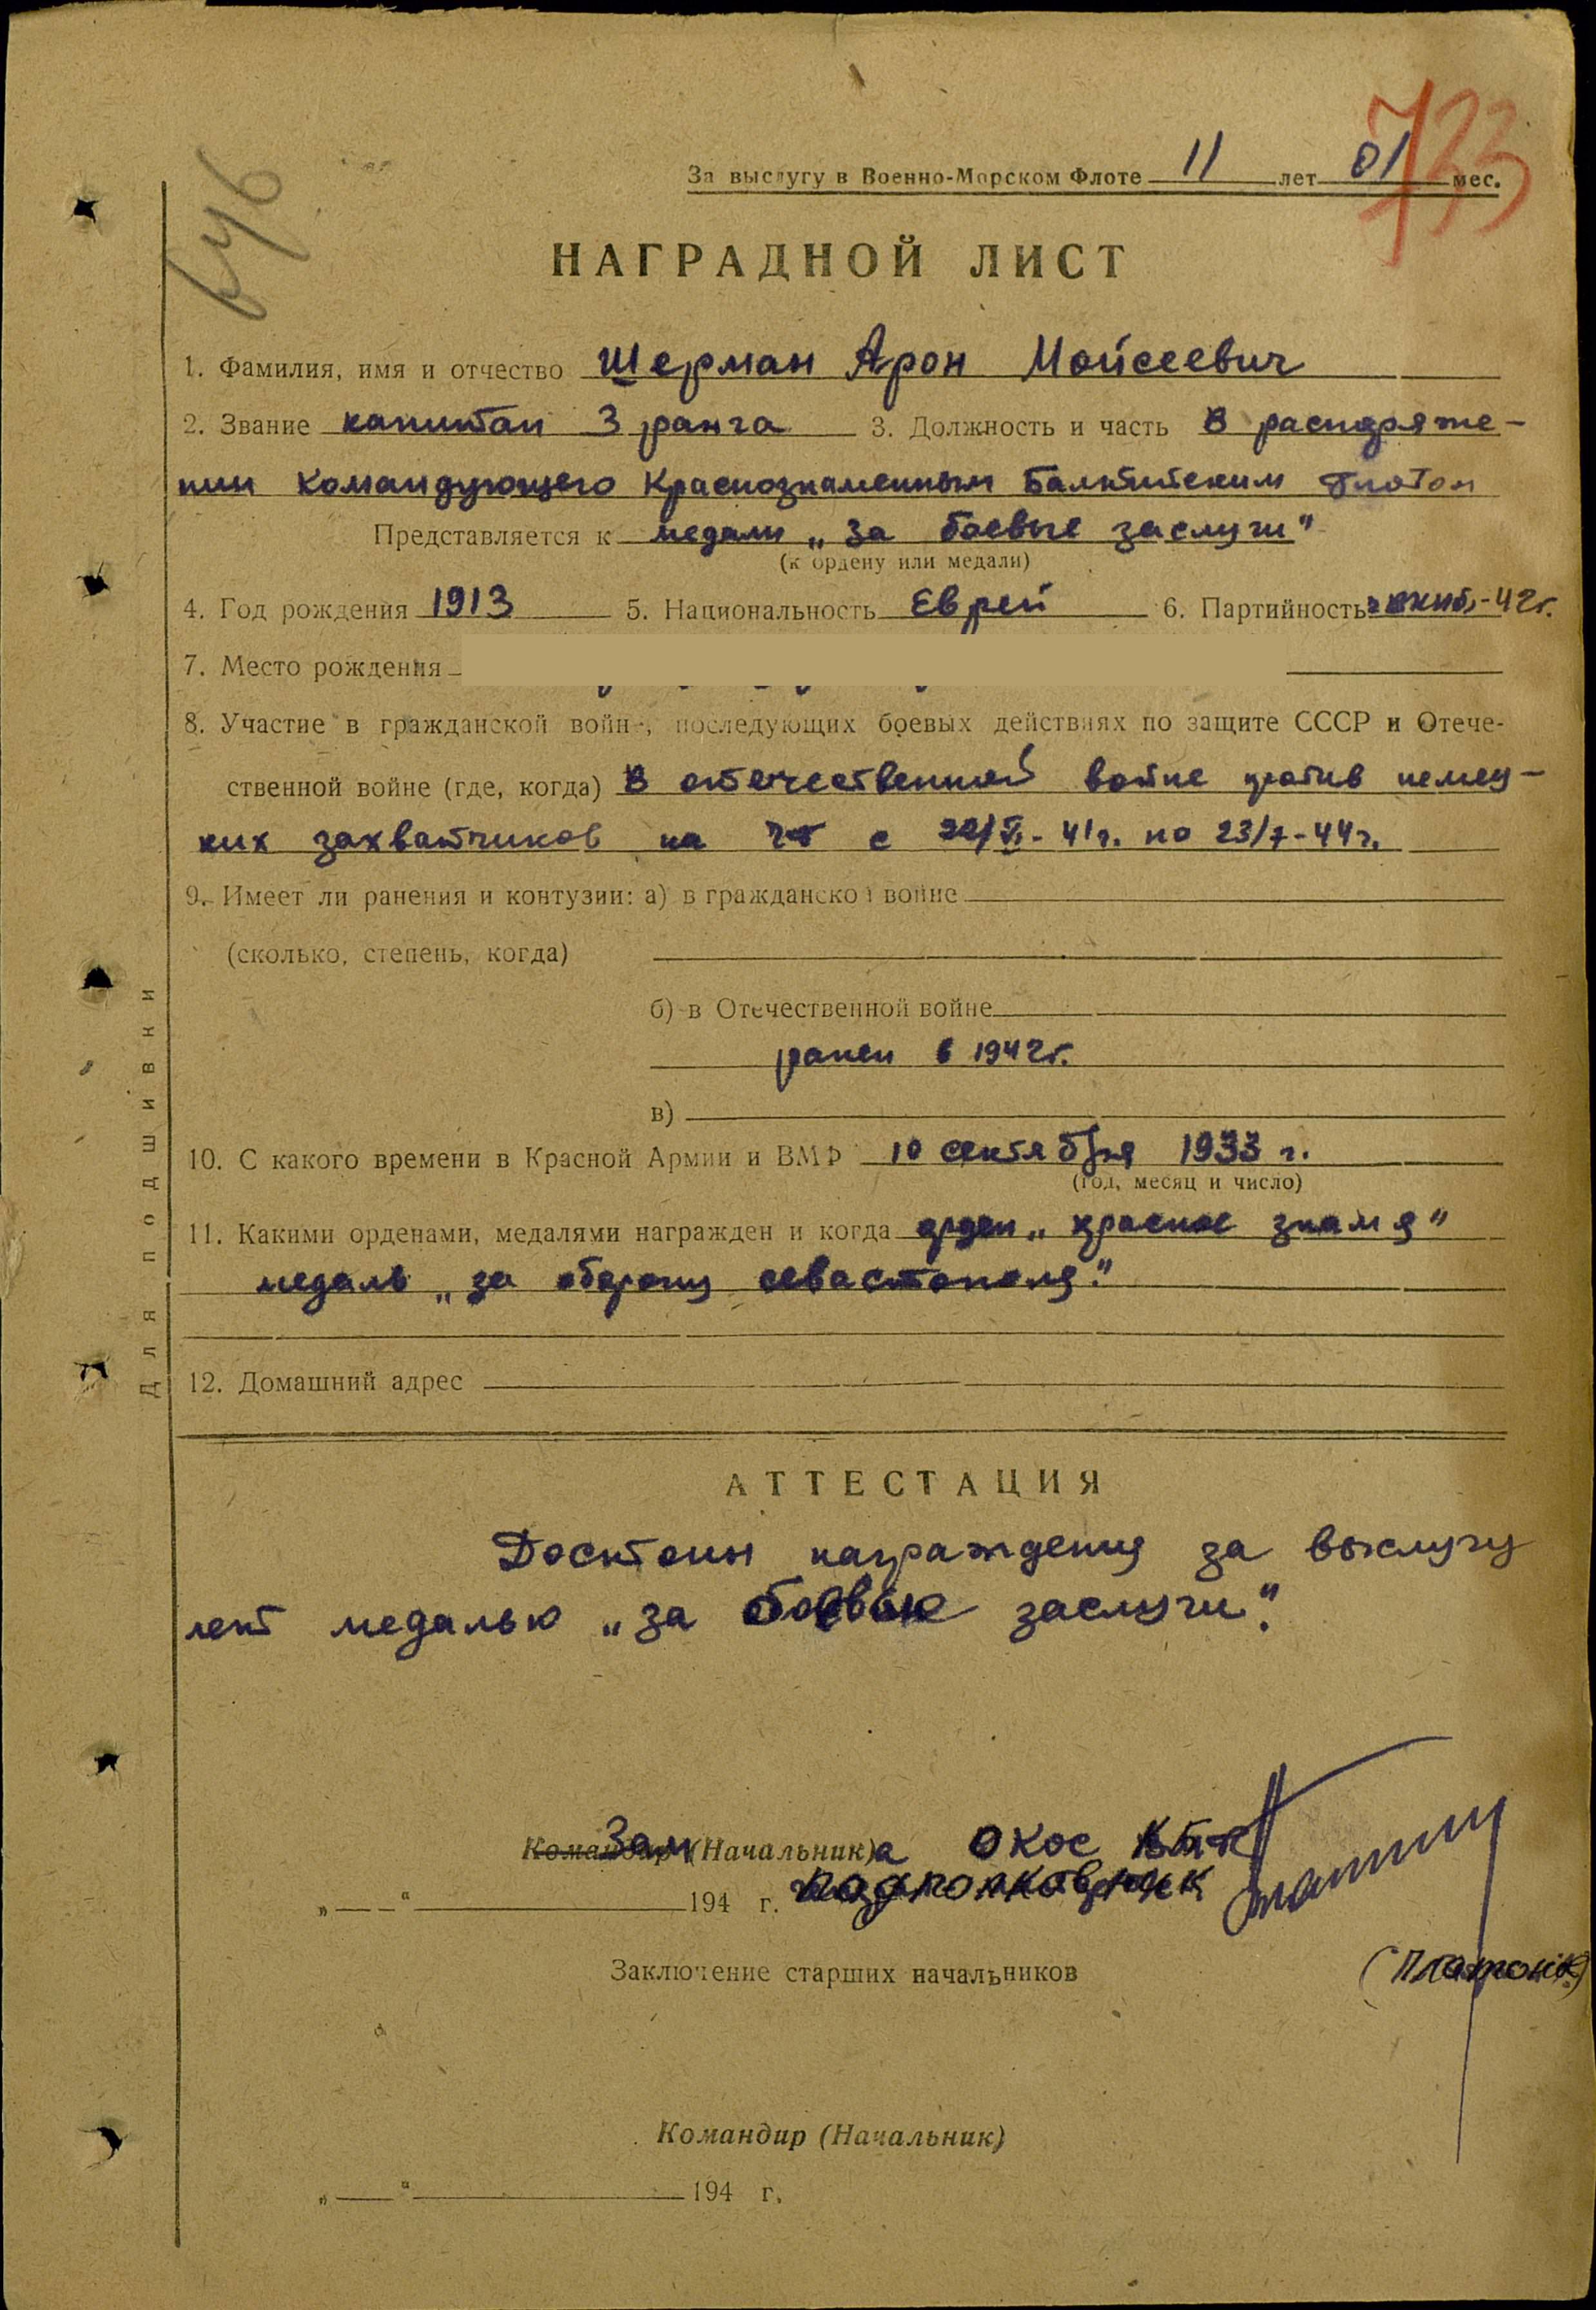 733
646
За выслугу в Военно-Морском Флоте 11 лет 01 мес.
НАГРАДНОЙ ЛИСТ
1. Фамилия, имя и отчество Шерман Арон Мойсеевич
2. Звание капитан 3 ранга 3. Должность и часть В распоряже-
нии Командующего Краснознаменным Балтийским Флотом
Представляется к медали „За боевые заслуги"
(к ордену или медали)
4. Год рождения 1913 5. Национальность Еврей 6. Партийность -42г.
7. Место рождения
8. Участие в гражданской войне, последующих боевых действиях по защите СССР и Отече-
ственной войне (где, когда) В отечественной войне против немец-
ких захватчиков на с 22/VI-41г. по 23/7-44г.
9. Имеет ли ранения и контузии: а) в гражданской войне
(сколько, степень, когда)
б) в Отечественной войне
ранен в 1942г.
в)
10. С какого времени в Красной Армии и ВМФ 10 сентября 1933 г.
(год, месяц и число)
11. Какими орденами, медалями награжден и когда орден „красное знамя"
медаль „за оборону севастополя".
12. Домашний адрес
АТТЕСТАЦИЯ
Достоин награждения за выслугу
лет медалью „за боевые заслуги".
Командир Зам (Начальник)а ОКОС КБФ
„ " 194 г. подполковник
Заключение старших начальников
Командир (Начальник)
„ " 194 г.
Для подшивки